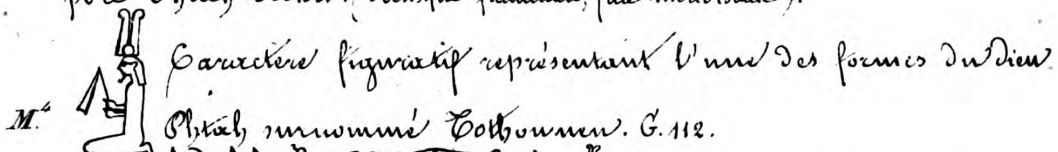 Caractère figuratif représentant l'une des formes du Dieu
M.
Phtah surnommé Tothounen. G. 112.